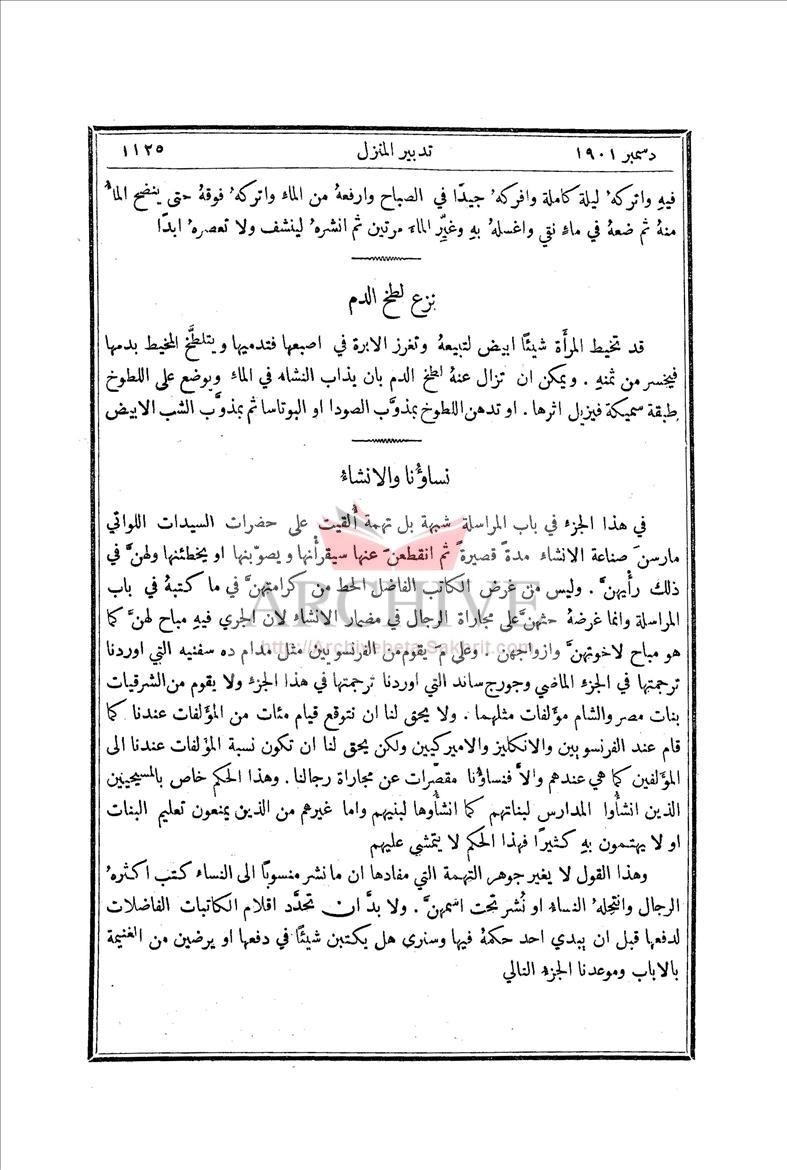 دسمبر ١٩٠١ تدبير المنزل ١١٢٥
فيهِ واتركهُ ليلة كاملة وافركهُ جيدًا في الصباح وارفعهُ من الماء واتركهُ فوقهُ حتى ينضح الماءُ
منهُ ثم ضعهُ في ماءٍ نقي واغسلهُ بهِ وغيِّر الماء مرتين ثم انشرهُ لينشف ولا تعصرهُ ابدًا
نزع لطخ الدم
قد تخيط المرأَة شيئًا ابيض لتبيعهُ وتغرز الابرة في اصبعها فتدميها ويتلطَّخ المخيط بدمها
فيخسر من ثمنهِ . ويمكن ان تزال عنهُ لطخ الدم بان يذاب النشاء في الماء ويوضع على اللطوخ
طبقة سميكة فيزيل اثرها . او تدهن اللطوخ بمذوَّب الصودا او البوتاسا ثم بمذوَّب الشب الابيض
نساؤُنا والانشاءُ
في هذا الجزء في باب المراسلة شبهة بل تهمة أُلقيت على حضرات السيدات اللواتي
مارسنَ صناعة الانشاء مدةً قصيرةً ثم انقطعنَ عنها سيقرأْنها ويصوّبنها او يخطئنها ولهنَّ في
ذلك رأْيهنَّ . وليس من غرض الكاتب الفاضل الحط من كرامتهنَّ في ما كتبهُ في باب
المراسلة وانما غرضهُ حثهنَّ على مجاراة الرجال في مضمار الانشاء لان الجري فيهِ مباح لهنَّ كما
هو مباح لاخوتهنَّ وازواجهنَّ . وعلى مَ يقوم من الفرنسويين مثل مدام ده سفنيه التي اوردنا
ترجمتها في الجزء الماضي وجورج ساند التي اوردنا ترجمتها في هذا الجزء ولا يقوم من الشرقيات
بنات مصر والشام مؤَلفات مثلهما . ولا يحق لنا ان نتوقع قيام مئات من المؤَلفات عندنا كما
قام عند الفرنسويين والانكليز والاميركيين ولكن يحق لنا ان تكون نسبة المؤَلفات عندنا الى
المؤَلفين كما هي عندهم والاَّ فنساؤُنا مقصّرات عن مجاراة رجالنا . وهذا الحكم خاص بالمسيحيين
الذين انشأُوا المدارس لبناتهم كما انشأُوها لبنيهم واما غيرهم من الذين يمنعون تعليم البنات
او لا يهتمون بهِ كثيرًا فهذا الحكم لا يتمشي عليهم
وهذا القول لا يغير جوهر التهمة التي مفادها ان ما نشر منسوبًا الى النساء كتب اكثرهُ
الرجال وانتحلهُ النساءُ او نُشر تحت اسمهنَّ . ولا بدَّ ان تحدَّد اقلام الكاتبات الفاضلات
لدفعها قبل ان يبدي احد حكمهُ فيها وسنرى هل يكتبن شيئًا في دفعها او يرضين من الغنيمة
بالاياب وموعدنا الجزء التالي
ARCHIVE
http://Archivebeta.Sakhrit.com